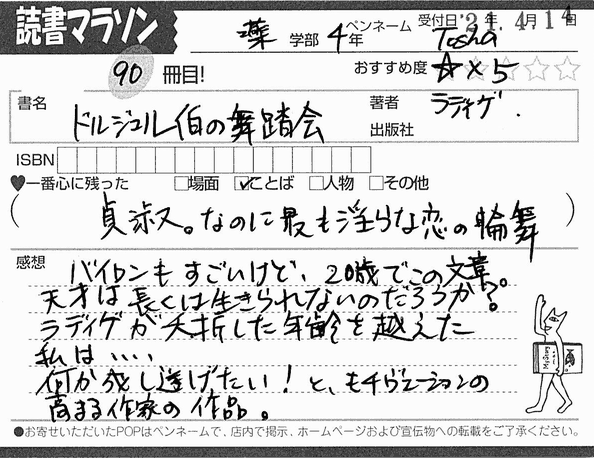 読書マラソン
薬 学部 4年 ペンネーム Tosha 受付日 '21. 4月14日
90 冊目!
おすすめ度 ☆×5
書名 ドルジェル伯の舞踏会
著者 ラディゲ.
出版社
ISBN
♥一番心に残った □場面 ☑ことば □人物 □その他
(貞淑又。なのに最も淫らな恋の輪舞)
感想 バイロンもすごいけど、20歳でこの文章。
天才は長くは生きられないのだろうか?
ラディゲが夭折した年齢を越えた
私は‥‥
何か成し遂げたい! と、モチヴェーションの
高まる作家の作品。
●お寄せいただいたPOPはペンネームで、店内で掲示、ホームページおよび宣伝物への転載をご了承ください。